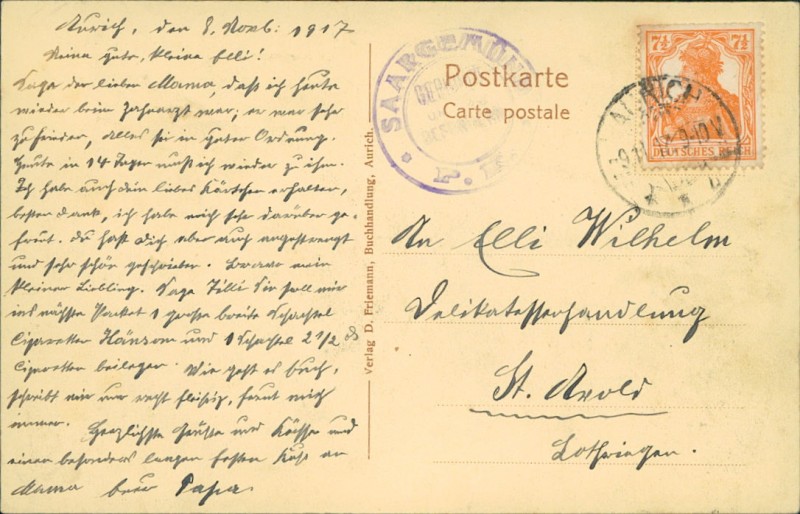 Aurich, den 8. Novb. 1917
Meine gute, kleine Elli!
Sage der lieben Mama, daß ich heute
wieder beim Zahnarzt war, er war sehr
zufrieden, alles sei in guter Ordnung.
Heute in 14 Tagen muß ich wieder zu ihm.
Ich habe auch dein liebes Kärtchen erhalten,
besten Dank, ich habe mich sehr darüber ge-
freut. Du hast dich aber auch angestrengt
und sehr schön geschrieben. Bravo mein
kleiner Liebling. Sage Tilli sie soll mir
ins nächste Packet 1 große breite Schachtel
Cigaretten und 1 Schachtel 2 1/2 ₰
Cigaretten beilegen. Wie geht es Euch,
schreibt mir nur recht fleißig, freut mich
immer. Herzlichste Grüße und Küsse und
einen besonders langen festen Kuß an
Mama Papa.
Verlag D. Friemann, Buchhandlung, Aurich.
SAARGEMÜND
Postkarte
Carte postale
7½ 7½
DEUTSCHES REICH
AURICH
An Elli Wilhelm
Delikatessenhandlung
St. Avold
Lothringen.